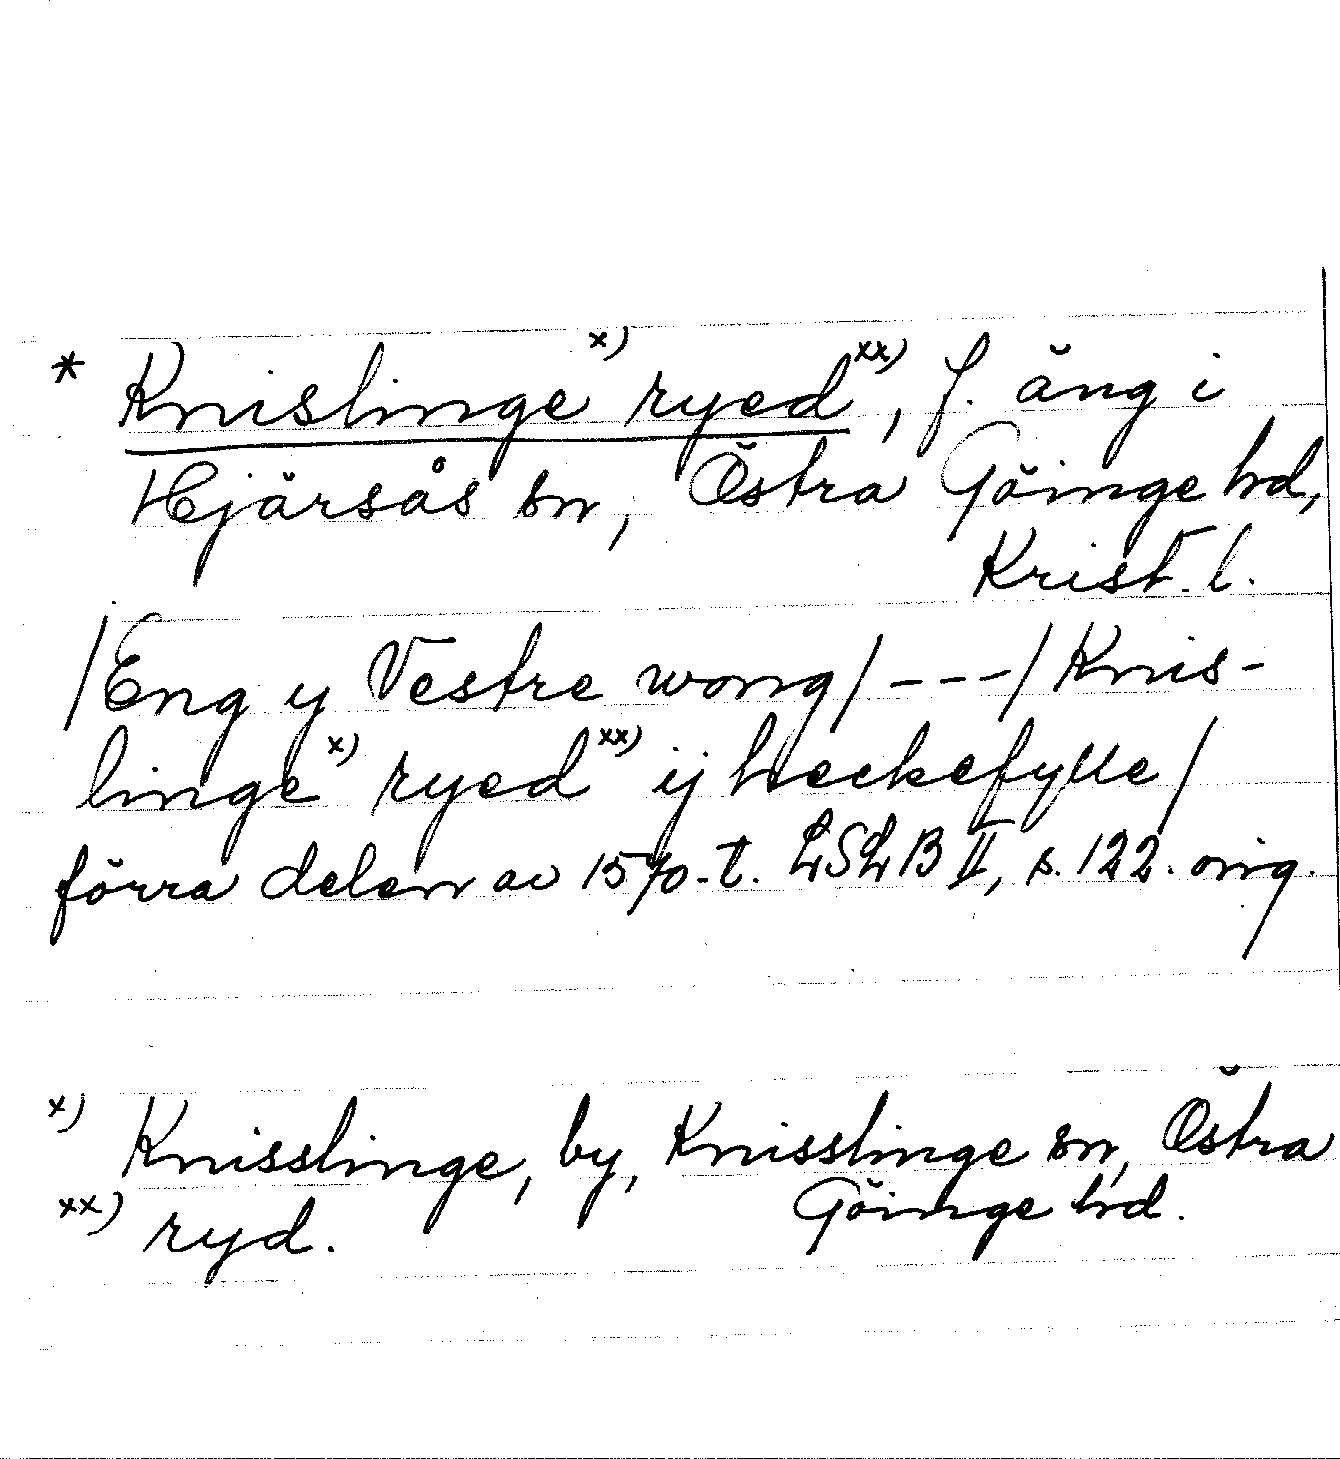 * Knislinge x) ryed xx), f. äng i
Hjärsås sn, Östra Göinge hd,
Krist. l.
/Eng y Vestre wong/ - - - / Knis-
linge x) ryed xx) ij heckefylle /
förra delen av 1570-t. LSLB II, s. 122. orig.
x) Knisslinge, by, Knisslinge sn, Östra
Göinge hd.
xx) ryd.